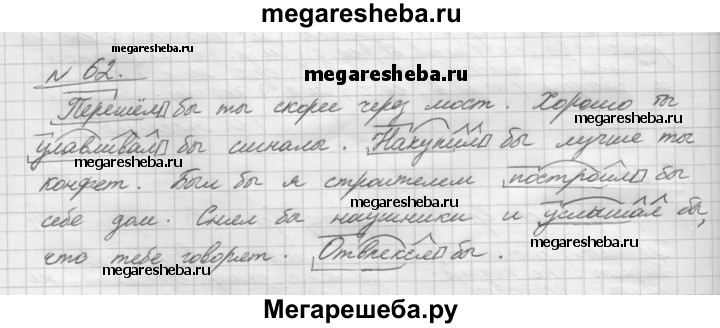 megaresheba.ru
№ 62.
megaresheba.ru
megaresheba.ru
Перешёл бы ты скорее через мост. Хорошо ты
улавливал бы сигналы. Накупил бы лучше ты
megaresheba.ru
megaresheba.ru
конфет. Был бы я строителем построил бы
себе дом. Снял бы наушники и услышал бы,
megaresheba.ru
что тебе говорят. Отвлекся бы.
megaresheba.ru
Мегарешеба.ру